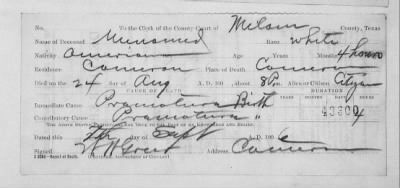 No. To the Clerk of the County Court of Milam County, Texas
Name of Deceased Unnamed Race White
Nativity American Age Years Months 4 hours
Residence Cameron Place of Death Cameron
Died on the 24 of Aug A. D. 190 about 8 P.m. Alien or Citizen Citizen
CAUSE OF DEATH DURATION
Immediate Cause: Premature Birth 43600
Contributory Cause: Premature "
Dated this 7th of Sept A. D. 190 6
Address Cameron